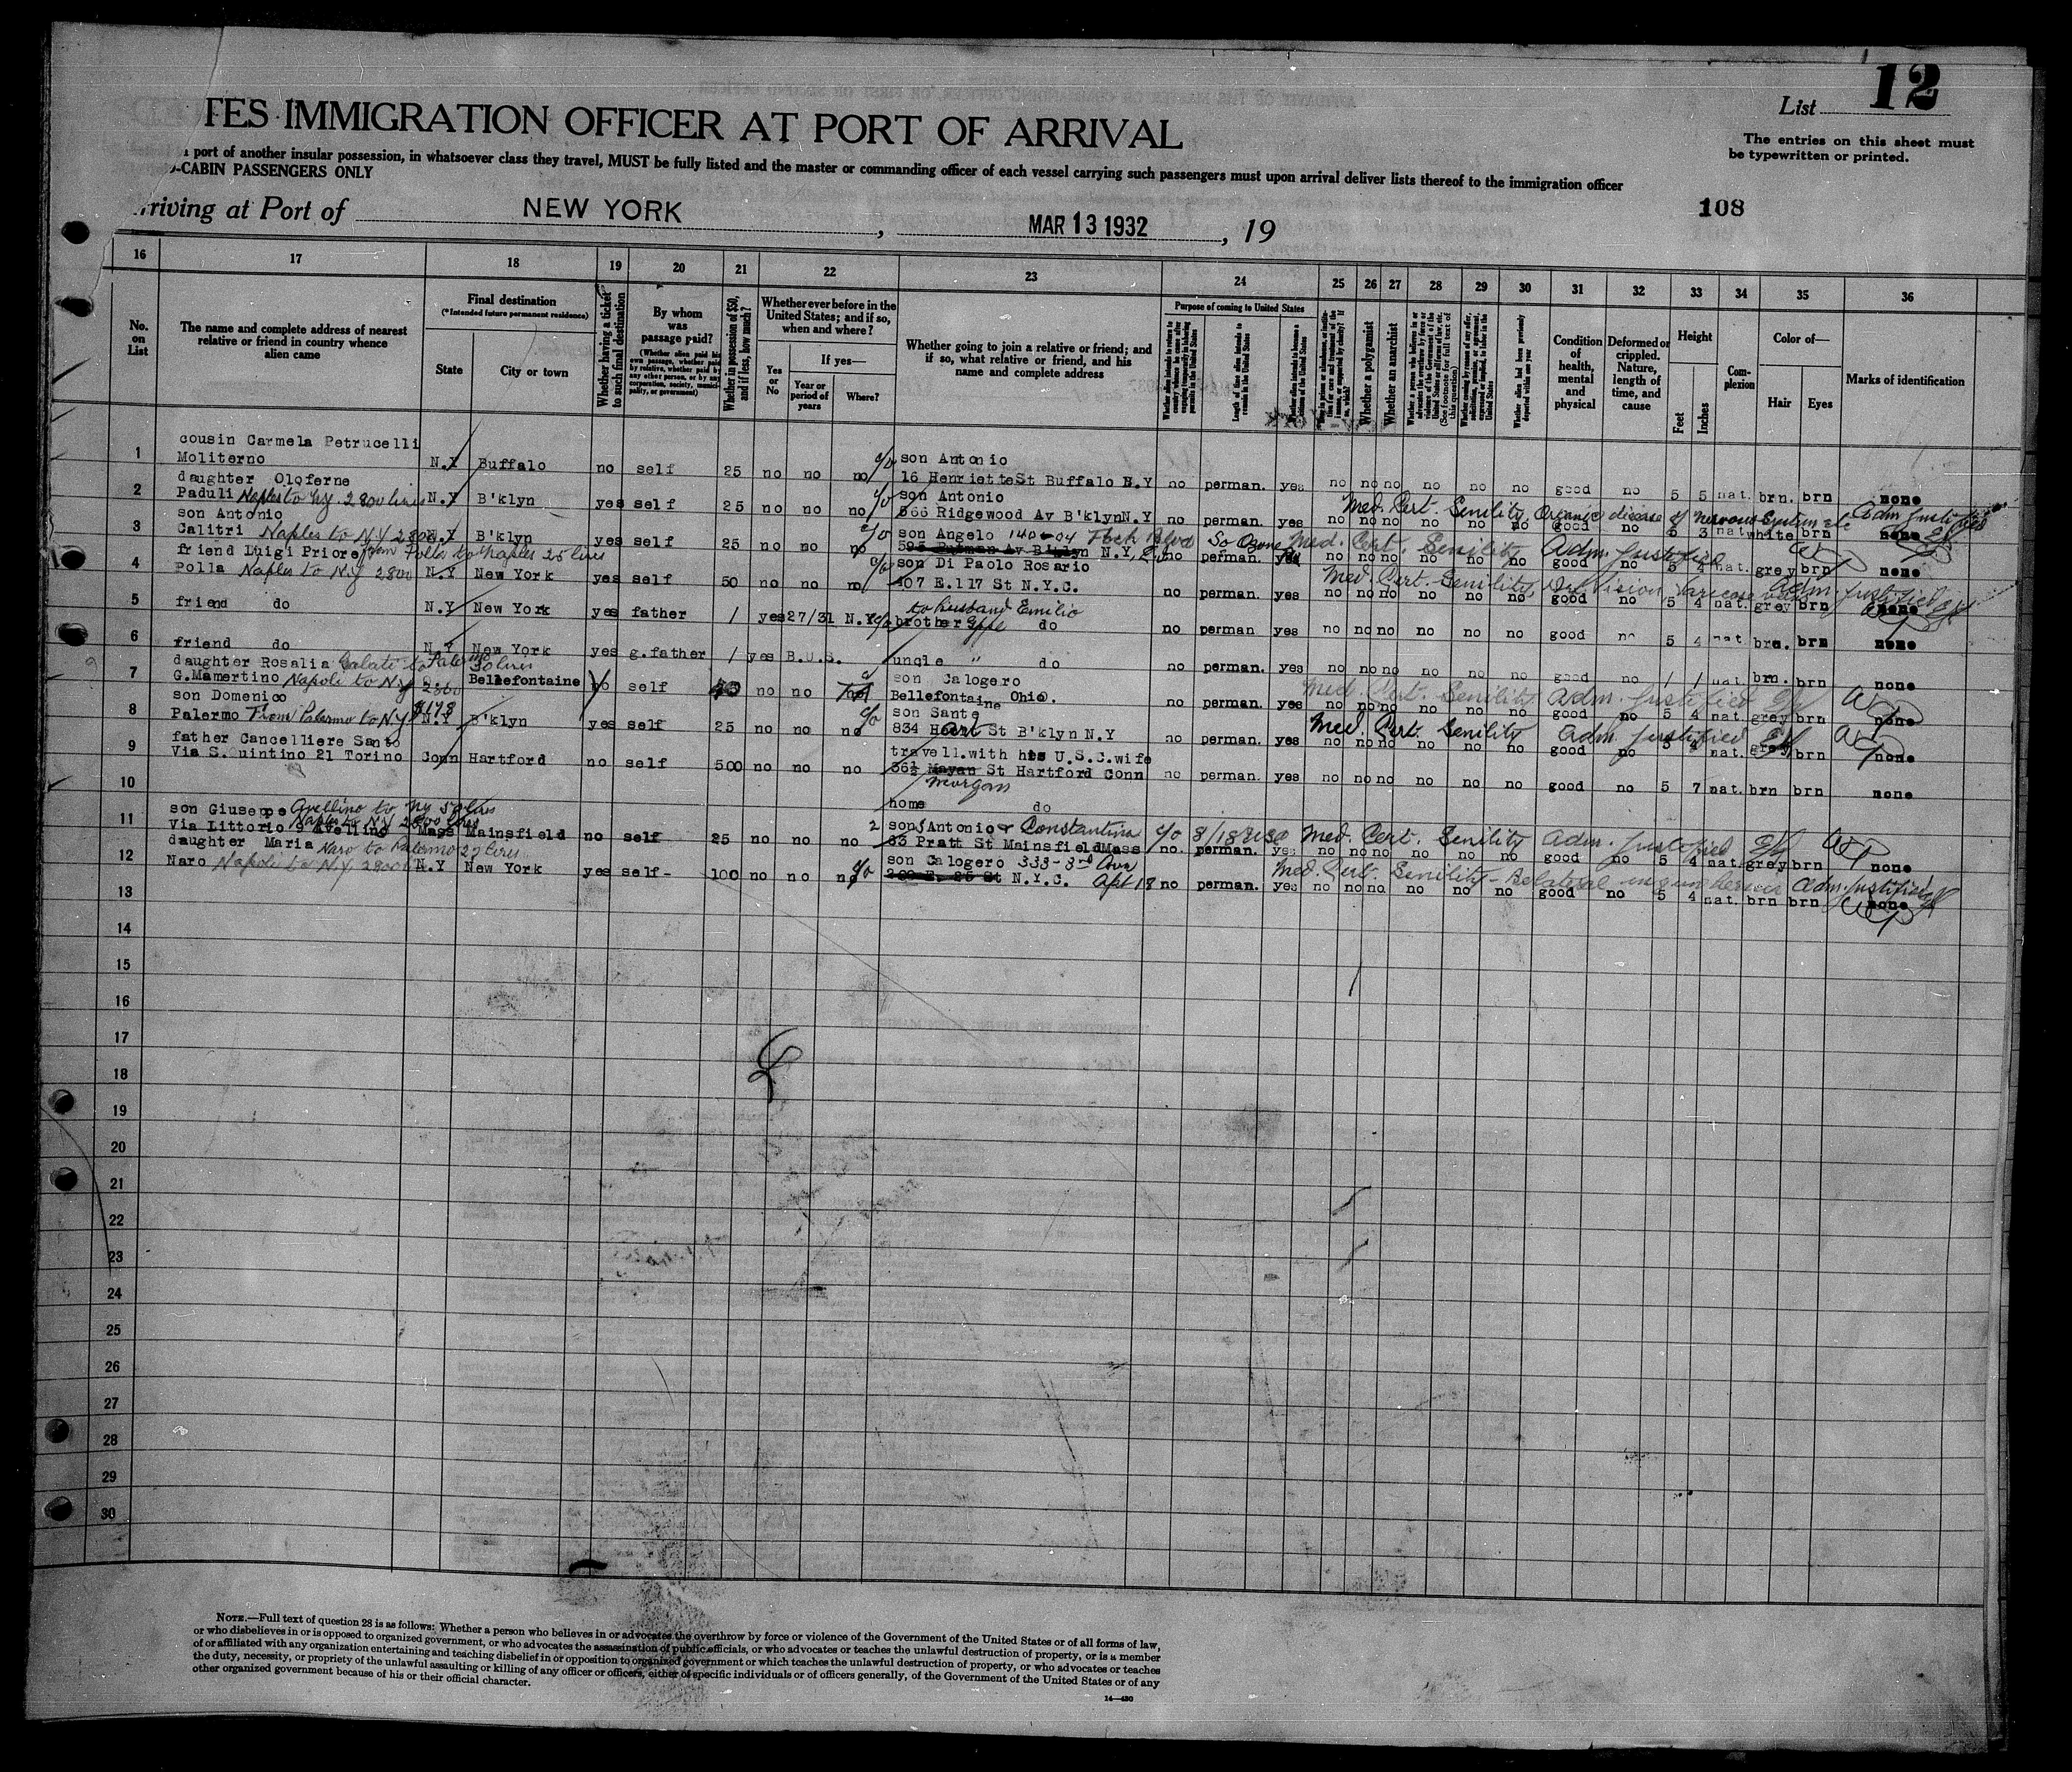 List 12
TES IMMIGRATION OFFICER AT PORT OF ARRIVAL
The entries on this sheet must
be typewritten or printed.
port of another insular possession, in whatsoever class they travel, MUST be fully listed and the master or commanding officer of each vessel carrying such passengers must upon arrival deliver lists thereof to the immigration officer
-CABIN PASSENGERS ONLY
108
rriving at Port of NEW YORK, MAR 13 1932, 19
16 17 18 19 20 21 22 23 24 25 26 27 28 29 30 31 32 33 34 35 36
No. on List
The name and complete address of nearest relative or friend in country whence alien came
Final destination
(*Intended future permanent residence)
State
City or town
Whether having a ticket to such final destination
By whom was passage paid?
(Whether alien paid his own passage, whether paid by relative, whether paid by any other person, or by any corporation, society, municipality, or government)
Whether in possession of $50, and if less, how much?
Whether ever before in the United States; and if so, when and where?
Yes or No
If yes—
Year or period of years
Where?
Whether going to join a relative or friend; and if so, what relative or friend, and his name and complete address
Purpose of coming to United States
Length of time alien intends to remain in the United States
Whether a polygamist
Whether an anarchist
Condition of health, mental and physical
Deformed or crippled. Nature, length of time, and cause
Height
Feet
Inches
Complexion
Color of—
Hair
Eyes
Marks of identification
cousin Carmela Petrucelli
1 Moliterno N.Y Buffalo no self 25 no no no c/o son Antonio
16 Henriette St Buffalo N.Y no perman. yes no no no no no no good no 5 5 nat. brn. brn none
daughter Oloferne
2 Paduli Naples to N.Y. 2800 lires N.Y B'klyn yes self 25 no no no c/o son Antonio
566 Ridgewood Av B'klyn N.Y no perman. yes no no no no no no good no 5 3 nat white brn none
Med. Cert. Senility, Organic disease of nervous system etc Adm. Justified
son Antonio
3 Calitri Naples to N.Y 2800 N.Y B'klyn yes self 25 no no no c/o son Angelo 140-04 Foch Blvd So Ozone
N.Y. no perman. yes no no no no no no good no 5 4 nat. grey brn none
Med. Cert. Senility Adm. Justified
friend Luigi Priore from Polla to Naples 25 lires
4 Polla Naples to N.Y 2800 N.Y New York yes self 50 no no no c/o son Di Paolo Rosario
407 E.117 St N.Y.C. no perman. yes no no no no no no good no 5 4 nat. grey brn none
Med. Cert. Senility, Def Vision, Varicose veins Adm. Justified
5 friend do N.Y New York yes father / yes 27/31 N.Y to husband Emilio
brother do no perman yes no no no no no no good no 5 4 nat. brn. brn none
6 friend do N.Y New York yes g.father / yes B.U.S. uncle " do no perman. yes no no no no no no good no / / nat brn. brn none
daughter Rosalia Galati to Palermo 30 lires
7 G.Mamertino Napoli to NY 2800 O. Bellefontaine no self no no son Calogero
Bellefontaine Ohio. no perman. yes no no no no no no good no 5 4 nat. grey brn none
Med. Cert. Senility Adm. Justified
son Domenico
8 Palermo From Palermo to NY $178 N.Y B'klyn yes self 25 no no no c/o son Sante
834 Hart St B'klyn N.Y no perman. yes no no no no no no good no 5 4 nat. grey brn none
Med. Cert. Senility Adm. Justified
father Cancelliere Santo
9 Via S.Quintino 21 Torino Conn Hartford no self 500 no no no travell.with his U.S.C.wife
36½ Mayan St Hartford Conn no perman. yes no no no no no no good no 5 7 nat. brn brn none
Morgan
10 home do
son Giuseppe Avellino to NY 50 lires
Naples to N.Y 2800 lires
11 Via Littorio 9 Avellino Mass Mainsfield no self 25 no no no 2 sons Antonio & Constantino
63 Pratt St Mainsfield Mass no perman. yes no no no no no no good no 5 4 nat. grey brn none
Med. Cert. Senility Adm. Justified
daughter Maria Naro to Palermo 27 lires
12 Naro Napoli to N.Y. 2800 N.Y New York yes self- 100 no no no c/o son Calogero 333-3rd Ave
N.Y.C. Apt 18 no perman. yes no no no no no no good no 5 4 nat. brn brn none
Med. Cert. Senility - Bilateral inguin hernia Adm. Justified
13
14
15
16
17
18
19
20
21
22
23
24
25
26
27
28
29
30
NOTE.—Full text of question 28 is as follows: Whether a person who believes in or advocates the overthrow by force or violence of the Government of the United States or of all forms of law,
or who disbelieves in or is opposed to organized government, or who advocates the assassination of public officials, or who advocates or teaches the unlawful destruction of property, or is a member
of or affiliated with any organization entertaining and teaching disbelief in or opposition to organized government or which teaches the unlawful destruction of property, or who advocates or teaches
the duty, necessity, or propriety of the unlawful assaulting or killing of any officer or officers, either of specific individuals or of officers generally, of the Government of the United States or of any
other organized government because of his or their official character.
14—430